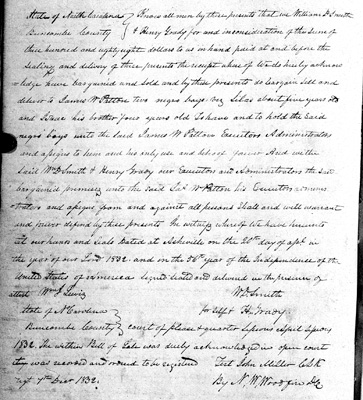 State of North Carolina } Know all men by these presents that we William D Smith
Buncombe County } & Henry Grady for and in consideration of the sum of
three hundred and eighty eight dollars to us in hand paid at and before the
sealing and delivery of these presents the receipt whereof We do hereby acknow
ledge have bargained and Sold and by these presents do bargain Sell and
deliver to James W Patton two negro boys. Silas about five years old
and his brother four years old To have and to hold the Said
negro boys unto the said James W Patton his Executors Administrators
and assigns to him and his only use and behoof forever And we the
Said Wm D Smith & Henry Grady our Executors and Administrators the said
bargained premises unto the Said Jas W Patton his Executors adminis
trators and assigns from and against all persons Shall and will warrant
and forever defend by these presents. In witness whereof We have hereunto
set our hands and seals Dated at Asheville on the day of
in the year of our Lord 1832. and on the 56th year of the Independence of the
United States of America signed sealed and delivered in the presence of
attest Wm Lewis W D Smith
State of N Carolina } for self & H Grady
Buncombe County } Court of pleas & quarter Sessions April Sessions
1832. The within Bill of Sale was duly acknowledged in open court
recorded and ordered to be registered Test John Miller Clk
7th Decr 1832. By N. W. Woodfin DC